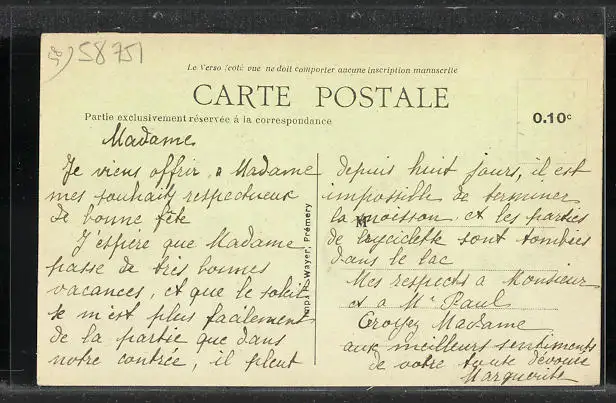 58) 58751
Le Verso (coté vue ne doit comporter aucune inscription manuscrite
CARTE POSTALE
Partie exclusivement réservée à la correspondance
0.10ᶜ
Madame
Je viens offrir à Madame
mes souhaits respectueux
de bonne fête
J'espère que Madame
passe de très bonnes
vacances, et que le soleil
se m'est plus facilement
de la partie que dans
notre contrée, il pleut
Wayer, Prémery
depuis huit jours, il est
impossible de terminer
la moisson et les parties
de byciclette sont tombées
dans le lac
Mes respects à Monsieur
et à Mr Paul
Croyez Madame
aux meilleurs sentiments
de votre toute dévouée
Marguerite